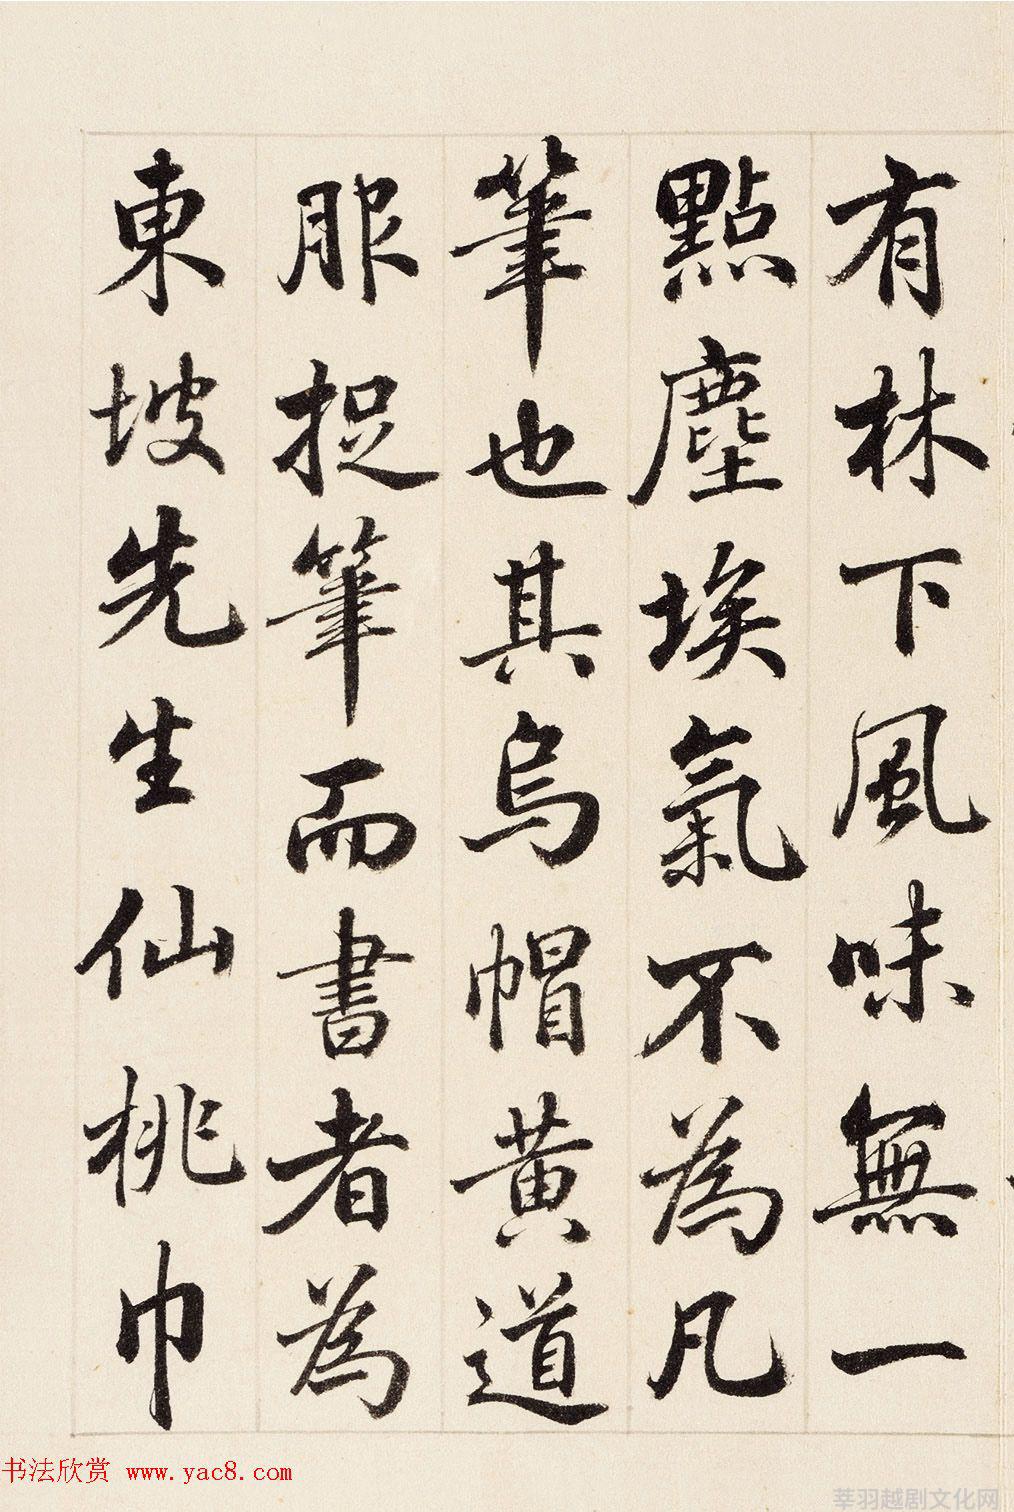 有林下風味無一
點塵埃氣不為凡
筆也其烏帽黃道
服捉筆而書者為
東坡先生仙桃巾
书法欣赏 www.yac8.com
莘羽越剧文化网